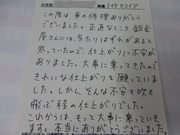 この度は車の修理ありがとう
ございました。正直なところ 鈑金
屋さんには、当たりはずれがあると
思っていたので、仕上がりに不安が
ありました。大事に乗ってきたので
きれいな仕上がりを願っていま
した。しかし、そんな不安も吹き
飛ぶ程の仕上がりでした。
これからは、もっと大事に乗ってい
きます。本当にありがとうございました。